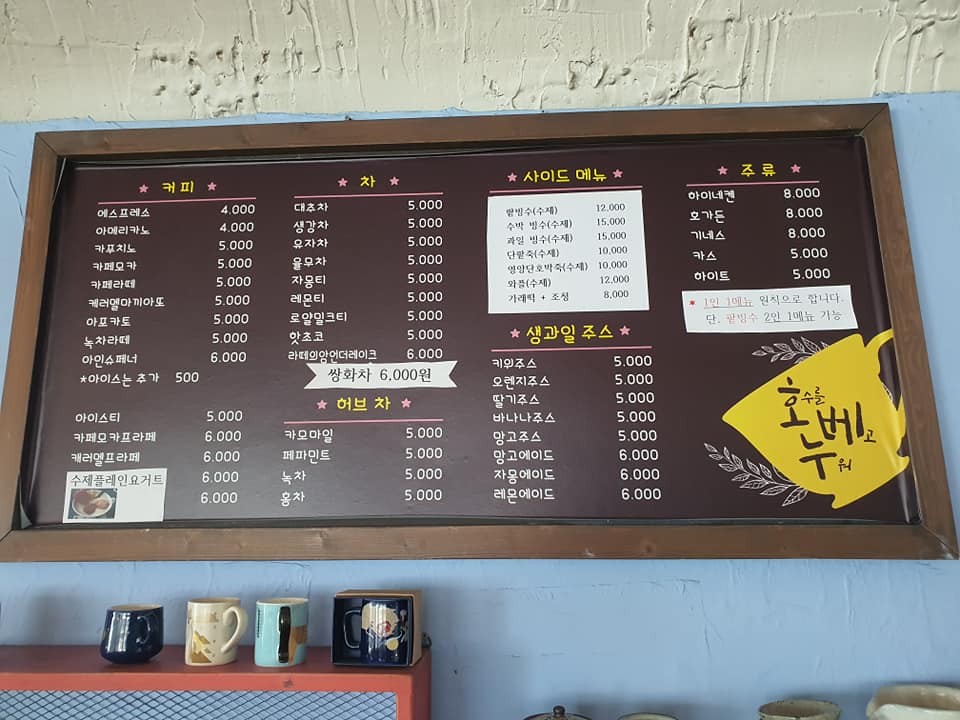 ★ 커피 ★
에스프레스 4.000
아메리카노 4.000
카푸치노 5.000
카페모카 5.000
카페라떼 5.000
케러멜마끼아또 5.000
아포카토 5.000
녹차라떼 5.000
아인슈페너 6.000
*아이스는 추가 500
아이스티 5.000
카페모카프라페 6.000
캐러멜프라페 6.000
수제플레인요거트 6.000
6.000
★ 차 ★
대추차 5.000
생강차 5.000
유자차 5.000
율무차 5.000
자몽티 5.000
레몬티 5.000
로얄밀크티 5.000
핫초코 5.000
라떼의암언더레이크 6.000
쌍화차 6,000원
★ 허브 차 ★
카모마일 5.000
페파민트 5.000
녹차 5.000
홍차 5.000
★ 사이드 메뉴 ★
팥빙수(수제) 12,000
수박 빙수(수제) 15,000
과일 빙수(수제) 15,000
단팥죽(수제) 10,000
영양단호박죽(수제) 10,000
와플(수제) 12,000
가래떡 + 조청 8,000
★ 생과일 주스 ★
키위주스 5.000
오렌지주스 5.000
딸기주스 5.000
바나나주스 5.000
망고주스 5.000
망고에이드 6.000
자몽에이드 6.000
레몬에이드 6.000
★ 주류 ★
하이네켄 8.000
호가든 8.000
기네스 8.000
카스 5.000
하이트 5.000
* 1인 1메뉴 원칙으로 합니다.
단, 팥빙수 2인 1메뉴 가능
호수를
베고
누워